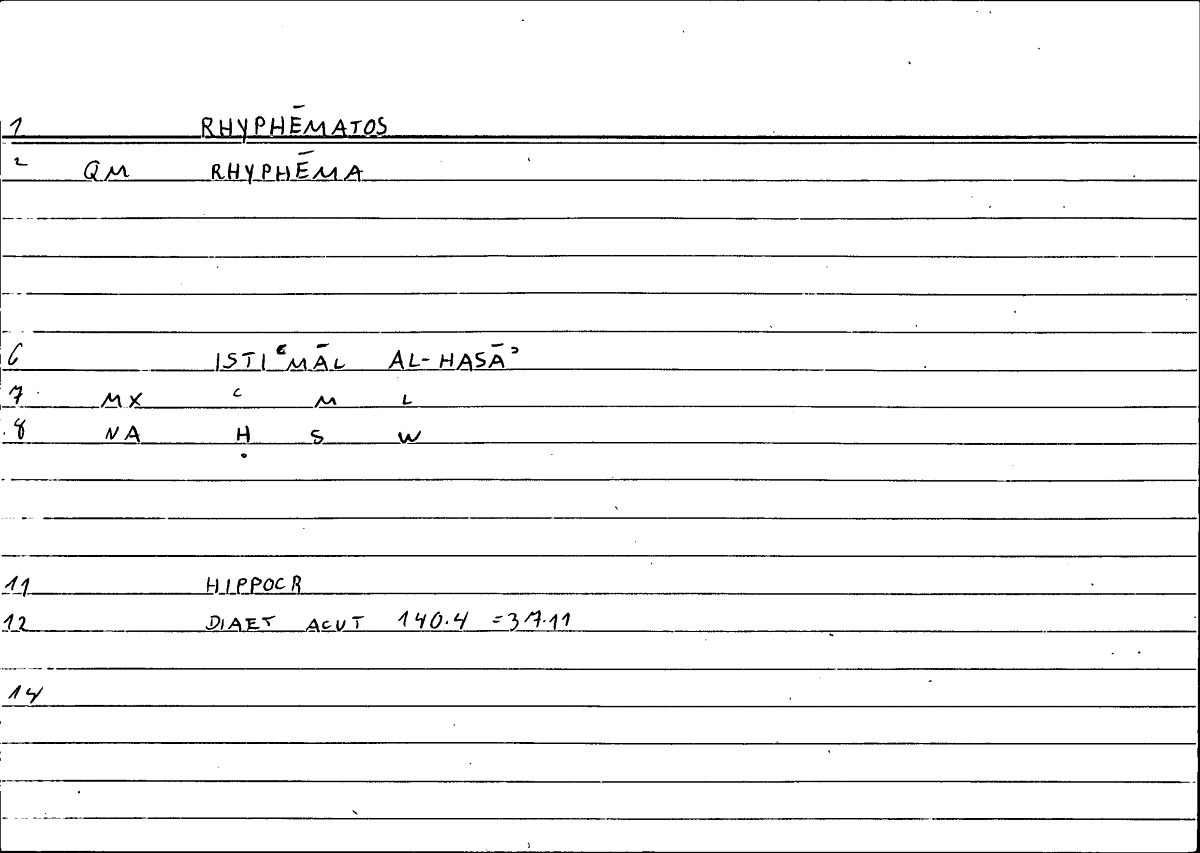 1 RHYPHĒMATOS
2 QM RHYPHĒMA
6 ISTIʿMĀL AL-HASĀʾ
7 MX ʿ M L
8 NA Ḥ S W
11 HIPPOCR
12 DIAET ACUT 140.4
14